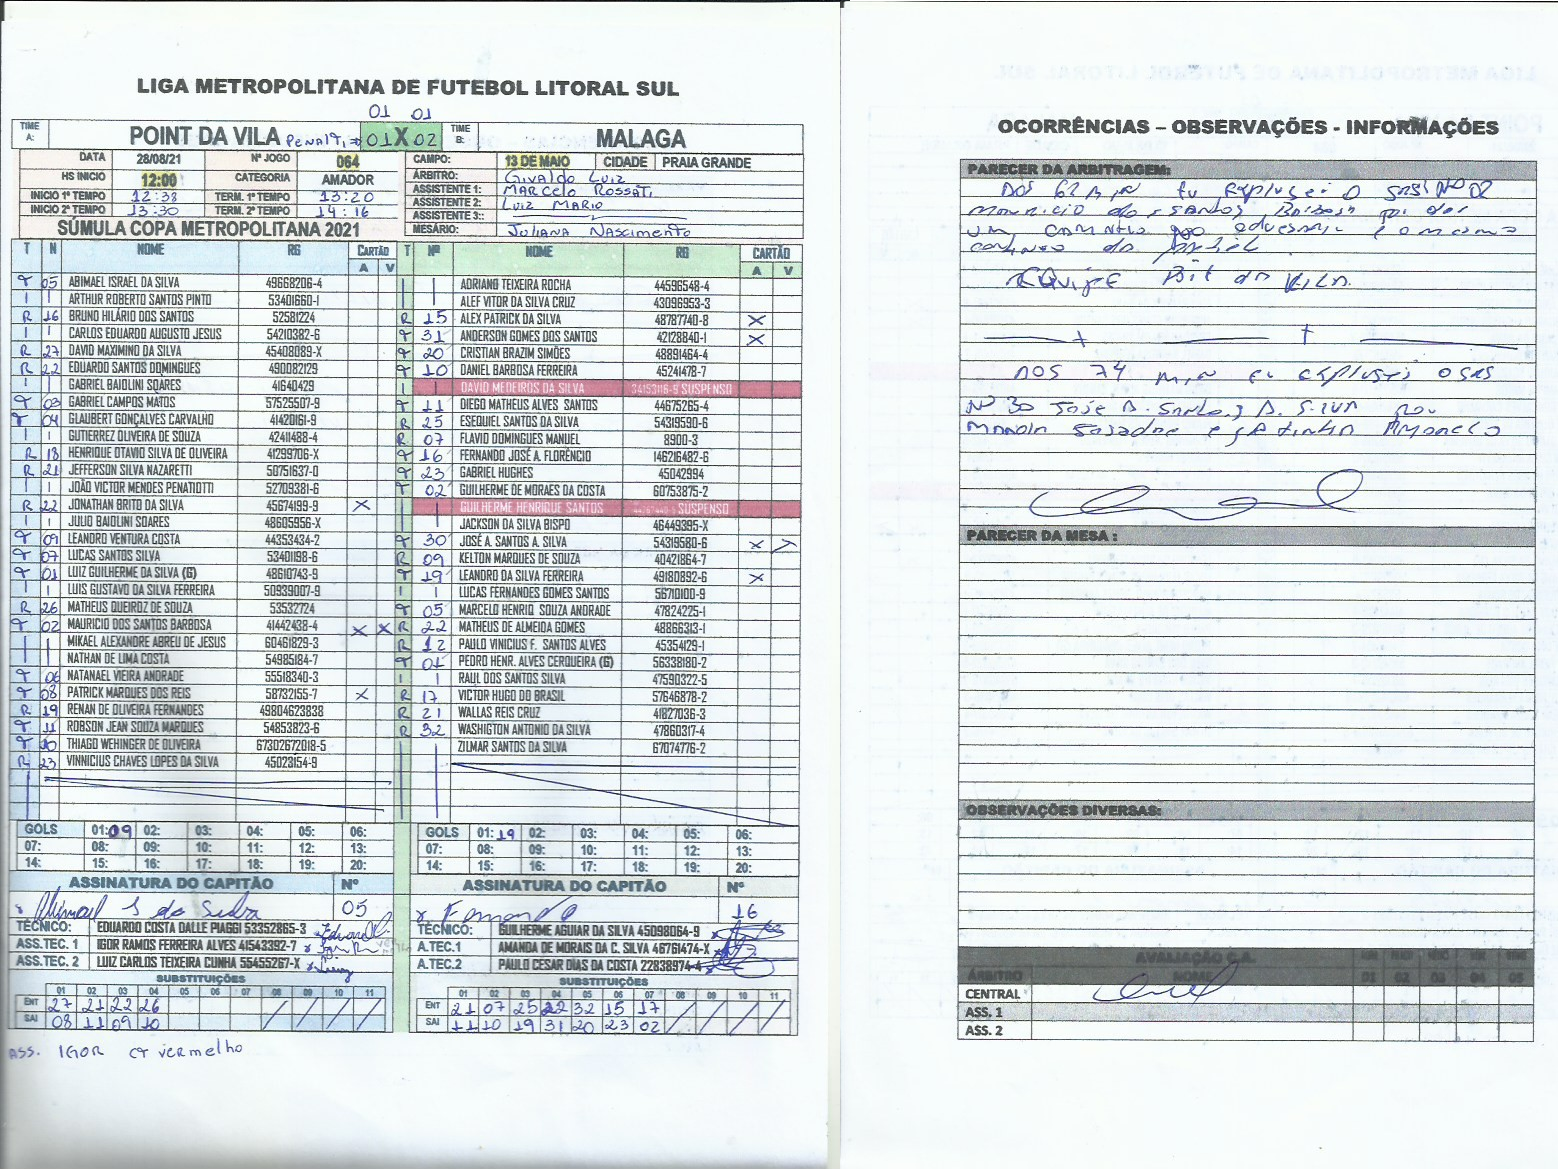 LIGA METROPOLITANA DE FUTEBOL LITORAL SUL
01 01
TIME A: POINT DA VILA Penalti 01 X 02 TIME B: MALAGA
DATA 28/08/21 Nº JOGO 064 CAMPO: 13 DE MAIO CIDADE PRAIA GRANDE
HS INICIO 12:00 CATEGORIA AMADOR ÁRBITRO: Givaldo Luiz
ASSISTENTE 1: Marcelo Rossati
INICIO 1º TEMPO 12:38 TERM. 1º TEMPO 13:20 ASSISTENTE 2: Luiz Mario
INICIO 2º TEMPO 13:30 TERM. 2º TEMPO 14:16 ASSISTENTE 3::
SÚMULA COPA METROPOLITANA 2021 MESÁRIO: Juliana Nascimento
T N NOME RG CARTÃO A V
T 05 ABIMAEL ISRAEL DA SILVA 49668206-4
ARTHUR ROBERTO SANTOS PINTO 53401660-1
R 16 BRUNO HILÁRIO DOS SANTOS 52581224
CARLOS EDUARDO AUGUSTO JESUS 54210382-6
R 27 DAVID MAXIMINO DA SILVA 45408089-X
R 22 EDUARDO SANTOS DOMINGUES 490082129
GABRIEL BAIOLINI SOARES 41640429
T 03 GABRIEL CAMPOS MATOS 57525507-9
T 04 GLAUBERT GONÇALVES CARVALHO 41420161-9
GUTIERREZ OLIVEIRA DE SOUZA 42411488-4
R 18 HENRIQUE OTAVIO SILVA DE OLIVEIRA 41299706-X
R 21 JEFFERSON SILVA NAZARETTI 50751637-0
JOÃO VICTOR MENDES PENATIOTTI 52709381-6
R 22 JONATHAN BRITO DA SILVA 45674199-9 X
JULIO BAIOLINI SOARES 48605956-X
T 09 LEANDRO VENTURA COSTA 44353434-2
T 07 LUCAS SANTOS SILVA 53401198-6
T 01 LUIZ GUILHERME DA SILVA (G) 48610743-9
LUIS GUSTAVO DA SILVA FERREIRA 50939007-9
R 26 MATHEUS QUEIROZ DE SOUZA 53532724
T 02 MAURICIO DOS SANTOS BARBOSA 41442438-4 X X
MIKAEL ALEXANDRE ABREU DE JESUS 60461829-3
NATHAN DE LIMA COSTA 54985184-7
T 06 NATANAEL VIEIRA ANDRADE 55518340-3
T 08 PATRICK MARQUES DOS REIS 58732155-7 X
R 19 RENAN DE OLIVEIRA FERNANDES 49804623838
T 11 ROBSON JEAN SOUZA MARQUES 54853823-6
T 10 THIAGO WEHINGER DE OLIVEIRA 67302672018-5
R 23 VINNICIUS CHAVES LOPES DA SILVA 45023154-9
GOLS 01: 09 02: 03: 04: 05: 06:
07: 08: 09: 10: 11: 12: 13:
14: 15: 16: 17: 18: 19: 20:
ASSINATURA DO CAPITÃO Nº
05
TÉCNICO: EDUARDO COSTA DALLE PIAGGI 53352865-3
ASS.TEC. 1 IGOR RAMOS FERREIRA ALVES 41543392-7
ASS.TEC. 2 LUIZ CARLOS TEIXEIRA CUNHA 55455267-X
SUBSTITUIÇÕES
01 02 03 04 05 06 07 08 09 10 11
ENT 27 21 22 26
SAI 08 11 09 10
ASS. IGOR CT vermelho
T Nº NOME RG CARTÃO A V
ADRIANO TEIXEIRA ROCHA 44596548-4
ALEF VITOR DA SILVA CRUZ 43096953-3
R 15 ALEX PATRICK DA SILVA 48787740-8 X
T 31 ANDERSON GOMES DOS SANTOS 42128840-1 X
T 20 CRISTIAN BRAZIM SIMÕES 48891464-4
T 10 DANIEL BARBOSA FERREIRA 45241478-7
DAVID MEDEIROS DA SILVA 34153116-9 SUSPENSO
T 11 DIEGO MATHEUS ALVES SANTOS 44675265-4
R 25 ESEQUIEL SANTOS DA SILVA 54319590-6
R 07 FLAVIO DOMINGUES MANUEL 8900-3
T 16 FERNANDO JOSÉ A. FLORÊNCIO 146216482-6
T 23 GABRIEL HUGHES 45042994
T 02 GUILHERME DE MORAES DA COSTA 60753875-2
GUILHERME HENRIQUE SANTOS SUSPENSO
JACKSON DA SILVA BISPO 46449395-X
T 30 JOSÉ A. SANTOS A. SILVA 54319580-6 X
R 09 KELTON MARQUES DE SOUZA 40421864-7
T 19 LEANDRO DA SILVA FERREIRA 49180892-6 X
LUCAS FERNANDES GOMES SANTOS 56710100-9
T 05 MARCELO HENRIQ SOUZA ANDRADE 47824225-1
R 22 MATHEUS DE ALMEIDA GOMES 48866313-1
R 12 PAULO VINICIUS F. SANTOS ALVES 45354129-1
T 01 PEDRO HENR. ALVES CERQUEIRA (G) 56338180-2
RAUL DOS SANTOS SILVA 47590322-5
R 17 VICTOR HUGO DO BRASIL 57646878-2
R 21 WALLAS REIS CRUZ 41827036-3
R 32 WASHIGTON ANTONIO DA SILVA 47860317-4
ZILMAR SANTOS DA SILVA 67074776-2
GOLS 01: 19 02: 03: 04: 05: 06:
07: 08: 09: 10: 11: 12: 13:
14: 15: 16: 17: 18: 19: 20:
ASSINATURA DO CAPITÃO Nº
Fernando 16
TÉCNICO: GUILHERME AGUIAR DA SILVA 45098064-9
A.TEC.1 AMANDA DE MORAIS DA C. SILVA 46761474-X
A.TEC.2 PAULO CESAR DIAS DA COSTA 22838974-4
SUBSTITUIÇÕES
01 02 03 04 05 06 07 08 09 10 11
ENT 21 07 25 22 32 15 17
SAI 11 10 19 31 20 23 02
OCORRÊNCIAS – OBSERVAÇÕES - INFORMAÇÕES
PARECER DA ARBITRAGEM:
Aos 62 min eu expulsei o Nº 02
Mauricio dos Santos Barbosa por dar
um
Equipe da Vila.
Aos 74 min eu expulsei o
Nº 30 José A. Santos A. Silva por
amarelo
PARECER DA MESA :
OBSERVAÇÕES DIVERSAS:
AVALIAÇÃO C.A.
ÁRBITRO NOME 01 02 03 04 05
CENTRAL
ASS. 1
ASS. 2